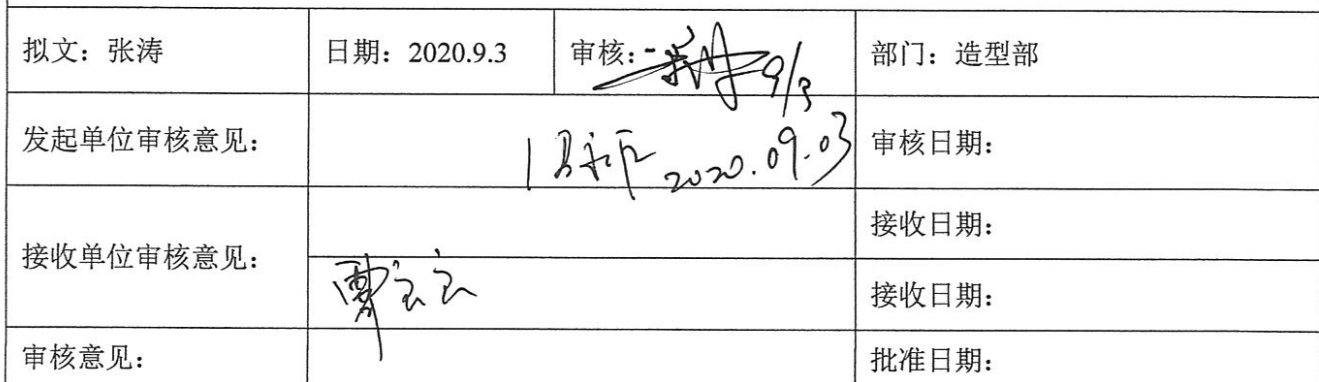 拟文：张涛 日期：2020.9.3 审核： 9/3 部门：造型部
发起单位审核意见： 2020.09.03 审核日期：
接收单位审核意见： 接收日期：
接收日期：
审核意见： 批准日期：